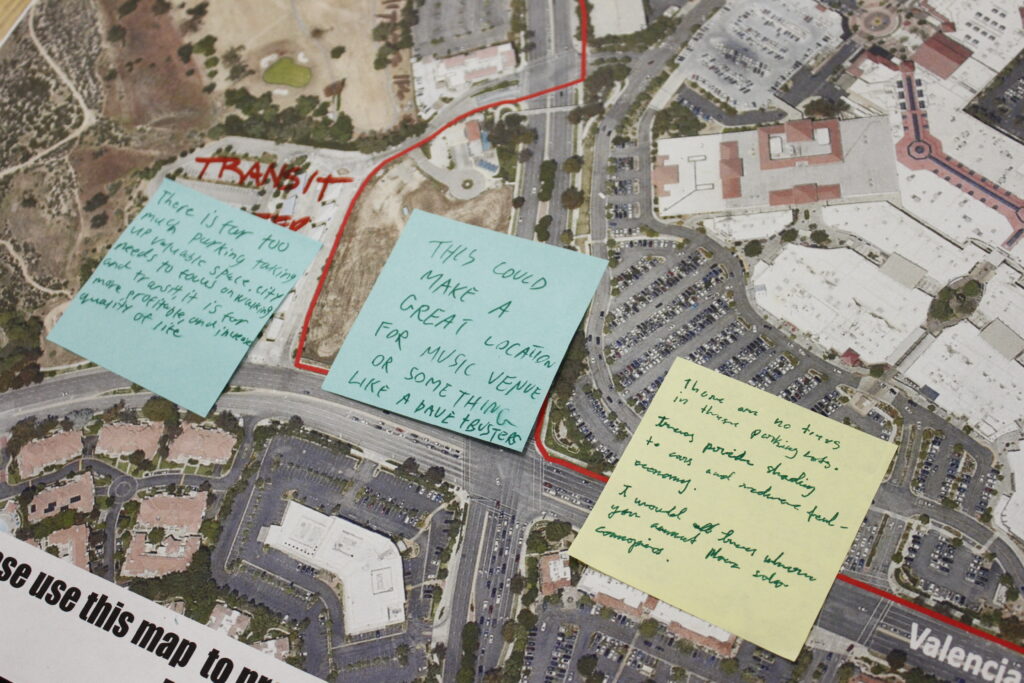 TRANSIT
There is far too
much parking taking
up valuable space. city
needs to focus on walking
and transit, it is far
more profitable, and increase
quality of life
THIS COULD
MAKE A
GREAT LOCATION
FOR MUSIC VENUE
OR SOMETHING
LIKE A DAVE & BUSTERS
There are no trees
in these parking lots.
Trees provide shading
to cars and reduce fuel-
economy.
I would trees where
you cannot place solar
canopies.
se use this map to pr
Valencia